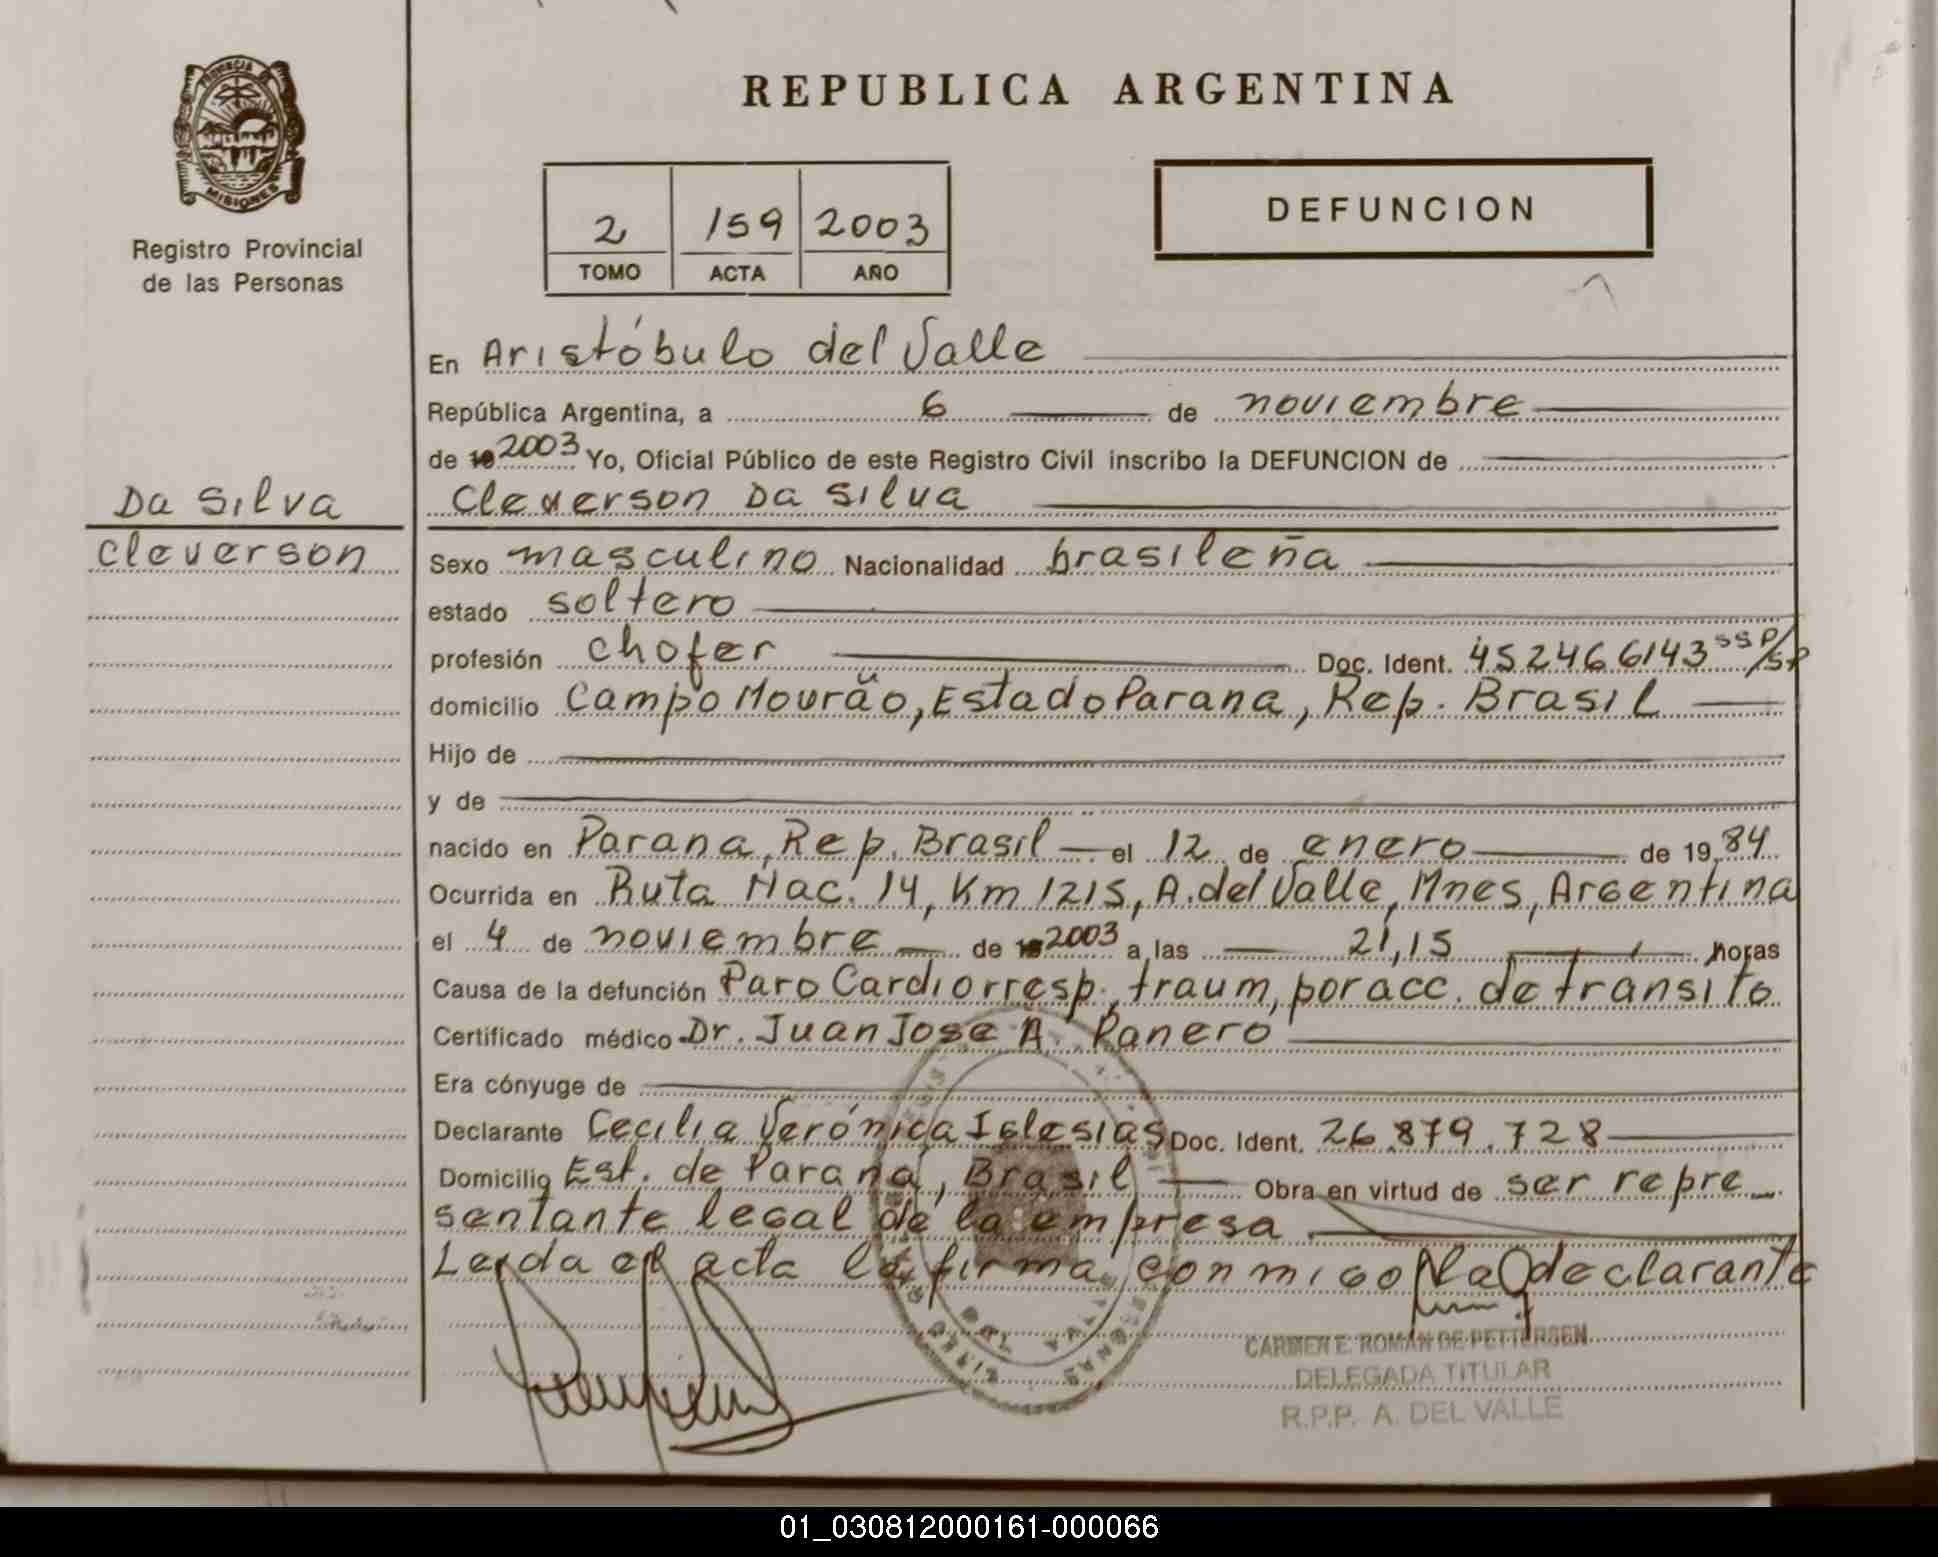 PROVINCIA DE
MISIONES
Registro Provincial
de las Personas
REPUBLICA ARGENTINA
2 159 2003
TOMO ACTA AÑO
DEFUNCION
En Aristóbulo del Valle
República Argentina, a 6 de noviembre
de 19 2003 Yo, Oficial Público de este Registro Civil inscribo la DEFUNCION de
Da Silva
Cleverson Da Silva
Cleverson
Sexo masculino Nacionalidad brasileña
estado soltero
profesión chofer Doc. Ident. 452466143 SSP/SP
domicilio Campo Mourão, Estado Parana, Rep. Brasil
Hijo de
y de
nacido en Parana, Rep. Brasil el 12 de enero de 19 84
Ocurrida en Ruta Nac. 14, Km 1215, A. del Valle, Mnes, Argentina
el 4 de noviembre de 19 2003 a las 21,15 horas
Causa de la defunción Paro Cardiorresp. traum, por acc. de transito
Certificado médico Dr. Juan Jose A. Panero
Era cónyuge de
Declarante Cecilia Verónica Iglesias Doc. Ident. 26.879.728
Domicilio Est. de Parana, Brasil Obra en virtud de ser repre_
sentante legal de la empresa
Leida el acta la firma conmigo la declarante
CARMEN E. ROMAN DE PETTERSEN
DELEGADA TITULAR
R.P.P. A. DEL VALLE
01_030812000161-000066